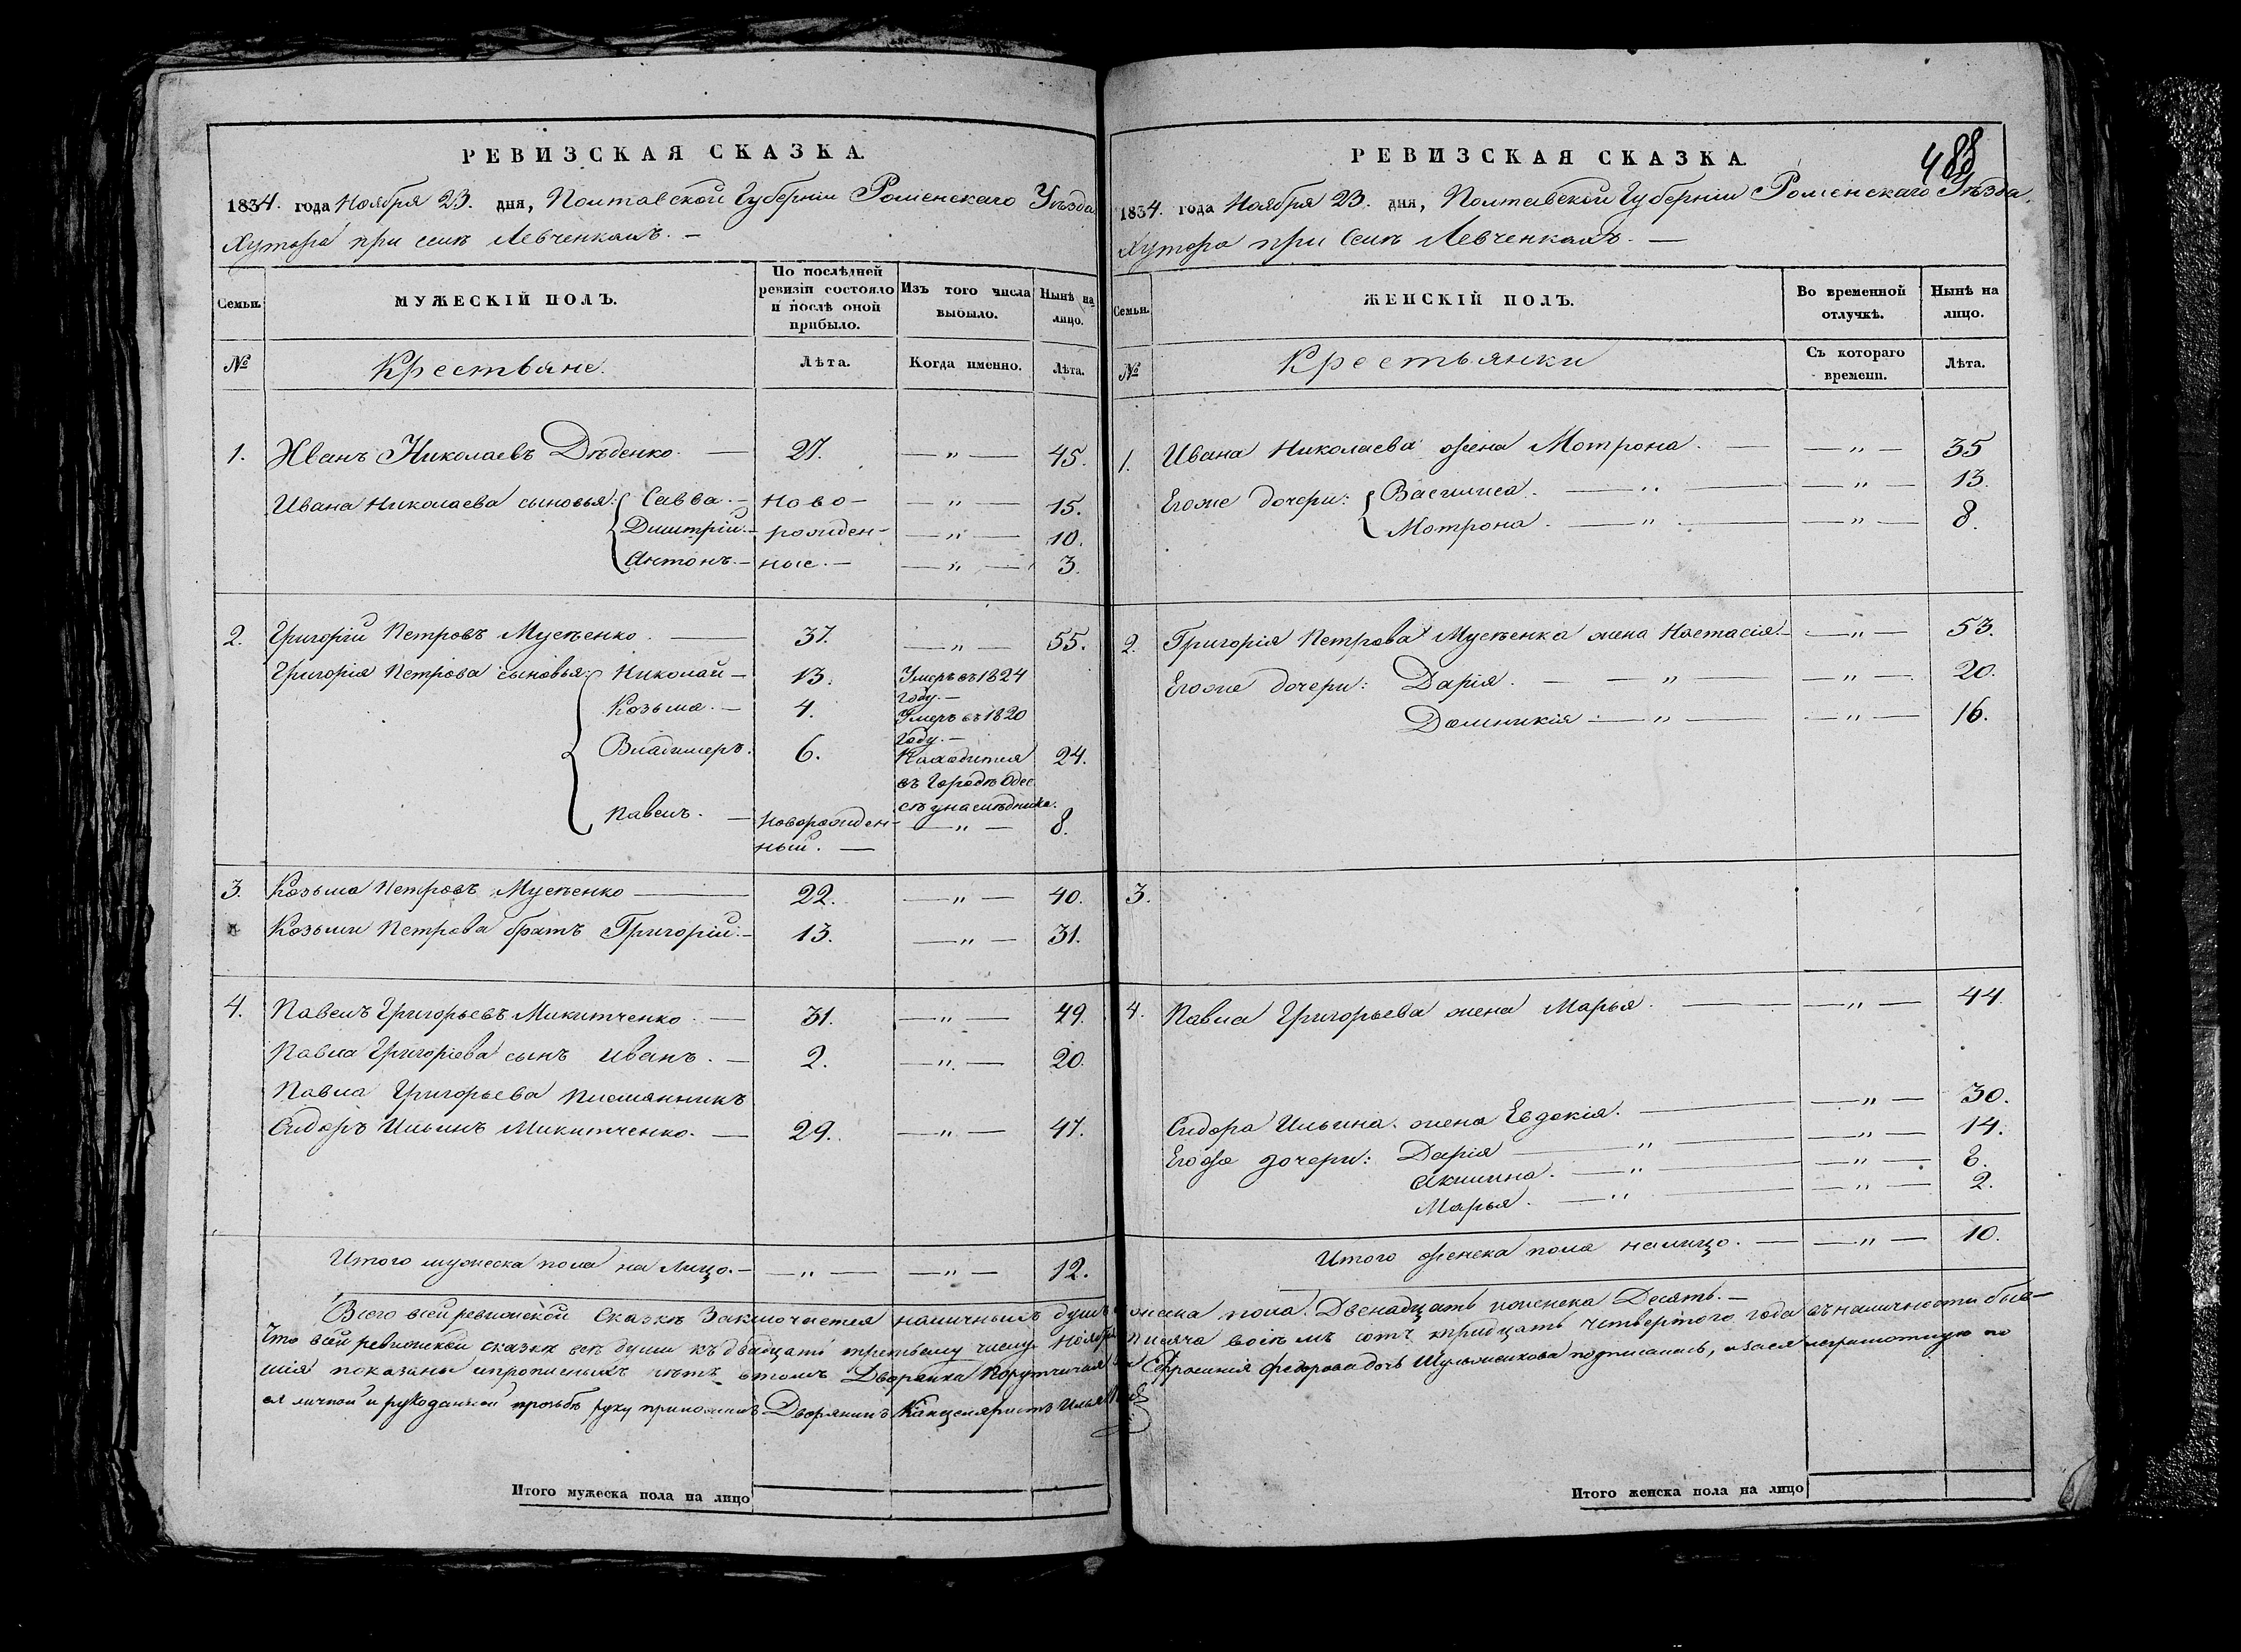 РЕВИЗСКАЯ СКАЗКА.
1834. года Ноября 23. дня, Полтавской Губерніи Роменскаго Уѣзда
Хутора при селѣ Левченкахъ. —
Семьи.
МУЖЕСКІЙ ПОЛЪ.
По послѣдней ревизіи состояло и послѣ оной прибыло.
Изъ того числа выбыло.
Нынѣ на лицо.
№
Крестьяне.
Лѣта.
Когда именно.
Лѣта.
1. Иванъ Николаевъ Дѣденко. — 27. — " — 45.
Ивана Николаева сыновья: Савва. — Ново- — " — 15.
Дмитрій. — рожден- — " — 10.
Антонъ. — ные. — — " — 3.
2. Григорій Петровъ Мусѣенко. — 37. — " — 55.
Григорія Петрова сыновья: Николай — 13. Умеръ въ 1824
году. —
Козьма. — 4. Умеръ въ 1820
году. —
Владимеръ. 6. Находится 24.
въ Городѣ Одес
сѣ
Павелъ. — Новорожден- — " — 8.
ный. —
3. Козьма Петровъ Мусѣенко — 22. — " — 40.
Козьми Петрова братъ Григорій. — 13. — " — 31.
4. Павелъ Григорьевъ Микитченко. — 31. — " — 49.
Павла Григоріева сынъ Иванъ. — 2. — " — 20.
Павла Григорьева племянникъ
Сидоръ Ильинъ Микитченко. — 29. — " — 47.
Итого мужеска пола на лицо. — — " — — " — 12.
РЕВИЗСКАЯ СКАЗКА.
488
1834. года Ноября 23. дня, Полтавской Губерніи Роменскаго Уѣзда,
Хутора при Селѣ Левченкахъ. —
Семьи.
ЖЕНСКІЙ ПОЛЪ.
Во временной отлучкѣ.
Нынѣ на лицо.
№
Крестьянки
Съ котораго времени.
Лѣта.
1. Ивана Николаева жена Мотрона. — — " — 35
Егоже дочери: Василиса. — " — — " — 13.
Мотрона. — " — — " — 8.
2. Григорія Петрова Мусѣенка жена Настасія. — — " — 53.
Егоже дочери: Дарія. — — " — " — 20.
Домникія — " — — " — 16.
3.
4. Павла Григорьева жена Марья. — — " — 44.
Сидора Ильина жена Евдокія. — — " — 30.
Егоже дочери: Дарія — " — — " — 14.
Акилина. — " — — " — 8.
Марья. — " — — " — 2.
Итого женска пола налицо. — — " — 10.
Всего всей ревизской Сказкѣ Заключается наличныхъ душъ мужеска пола. Двенадцать иженска Десять. —
Что всей ревизской сказкѣ всѣ души къ двадцати третьему числу Ноября тисяча восѣмъ сотъ тридцать четвертого года въ наличности быв-
шія показаны ипрописныхъ нѣтъ втомъ Дворянка Порутчичая Ефросинія федорова дочь подписалась, а за ея неграмотную по
ея личной и рукоданной прозьбѣ руку приложилъ Дворянинъ Канцеляристъ Илья
Итого мужеска пола на лицо
Итого женска пола на лицо